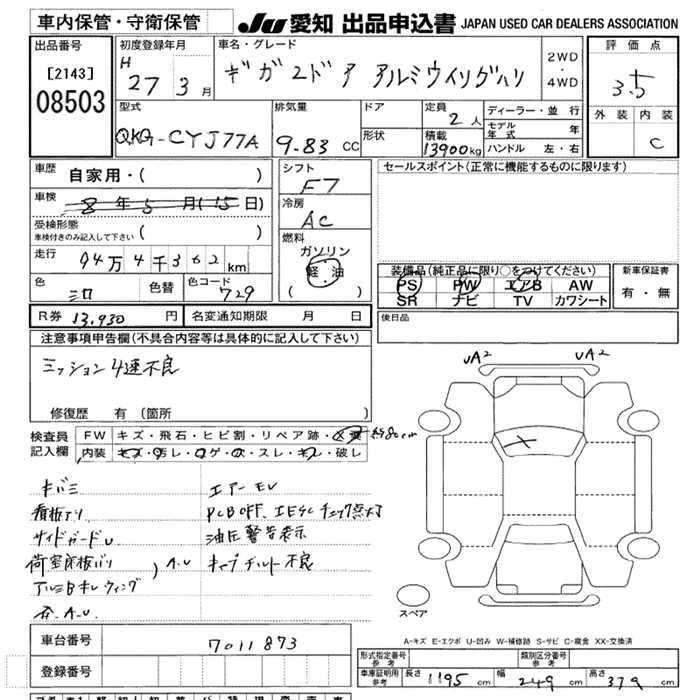 車内保管・守衛保管
JU 愛知 出品申込書 JAPAN USED CAR DEALERS ASSOCIATION
出品番号
[2143]
08503
初度登録年月
H 27 3 月
車名・グレード
ギガ 2ドア アルミウイング ハリ
2WD
・
4WD
評価点
3.5
外装 内装
C
型式
QKG-CYJ77A
排気量
9.83 CC
ドア
形状
定員
2 人
積載
13900kg
ディーラー・並 行
モデル年式 年
ハンドル 左・右
車歴
自家用・( )
車検
8年5月(15日)
受検形態
車検付きのみ記入して下さい ( )
走行
94万4千362km
色
シロ
色替
色コード
729
シフト
F7
冷房
AC
燃料
ガソリン
軽・油
( )
セールスポイント(正常に機能するものに限ります)
装備品(純正品に限り○をつけてください)
PS PW エアB AW
SR ナビ TV カワシート
新車保証書
有・無
R券 13,930 円
名変通知期限 月 日
後日品
注意事項申告欄(不具合内容等は具体的に記入して下さい)
ミッション4速不良
修復歴 有(箇所 )
検査員記入欄
FW キズ・飛石・ヒビ割・リペア跡・
80cm
内装 キズ・汚レ・コゲ・穴・スレ・キレ・破レ
キバミ
看板アリ
サイドガードU
荷室床板バリ
アルミBキレ ウィング
A.U
エアーEV
PCB OFF、IESC チェック点灯
油圧警告表示
キャブチルト不良
UA2 UA2
X
スペア
A-キズ E-エクボ U-凹み W-補修跡 S-サビ C-腐食 XX-交換済
車台番号
7011873
登録番号
形式指定番号
参考
類別区分番号
参考
車庫証明用
参考
長さ 1195 cm 幅 249 cm 高さ 379 cm